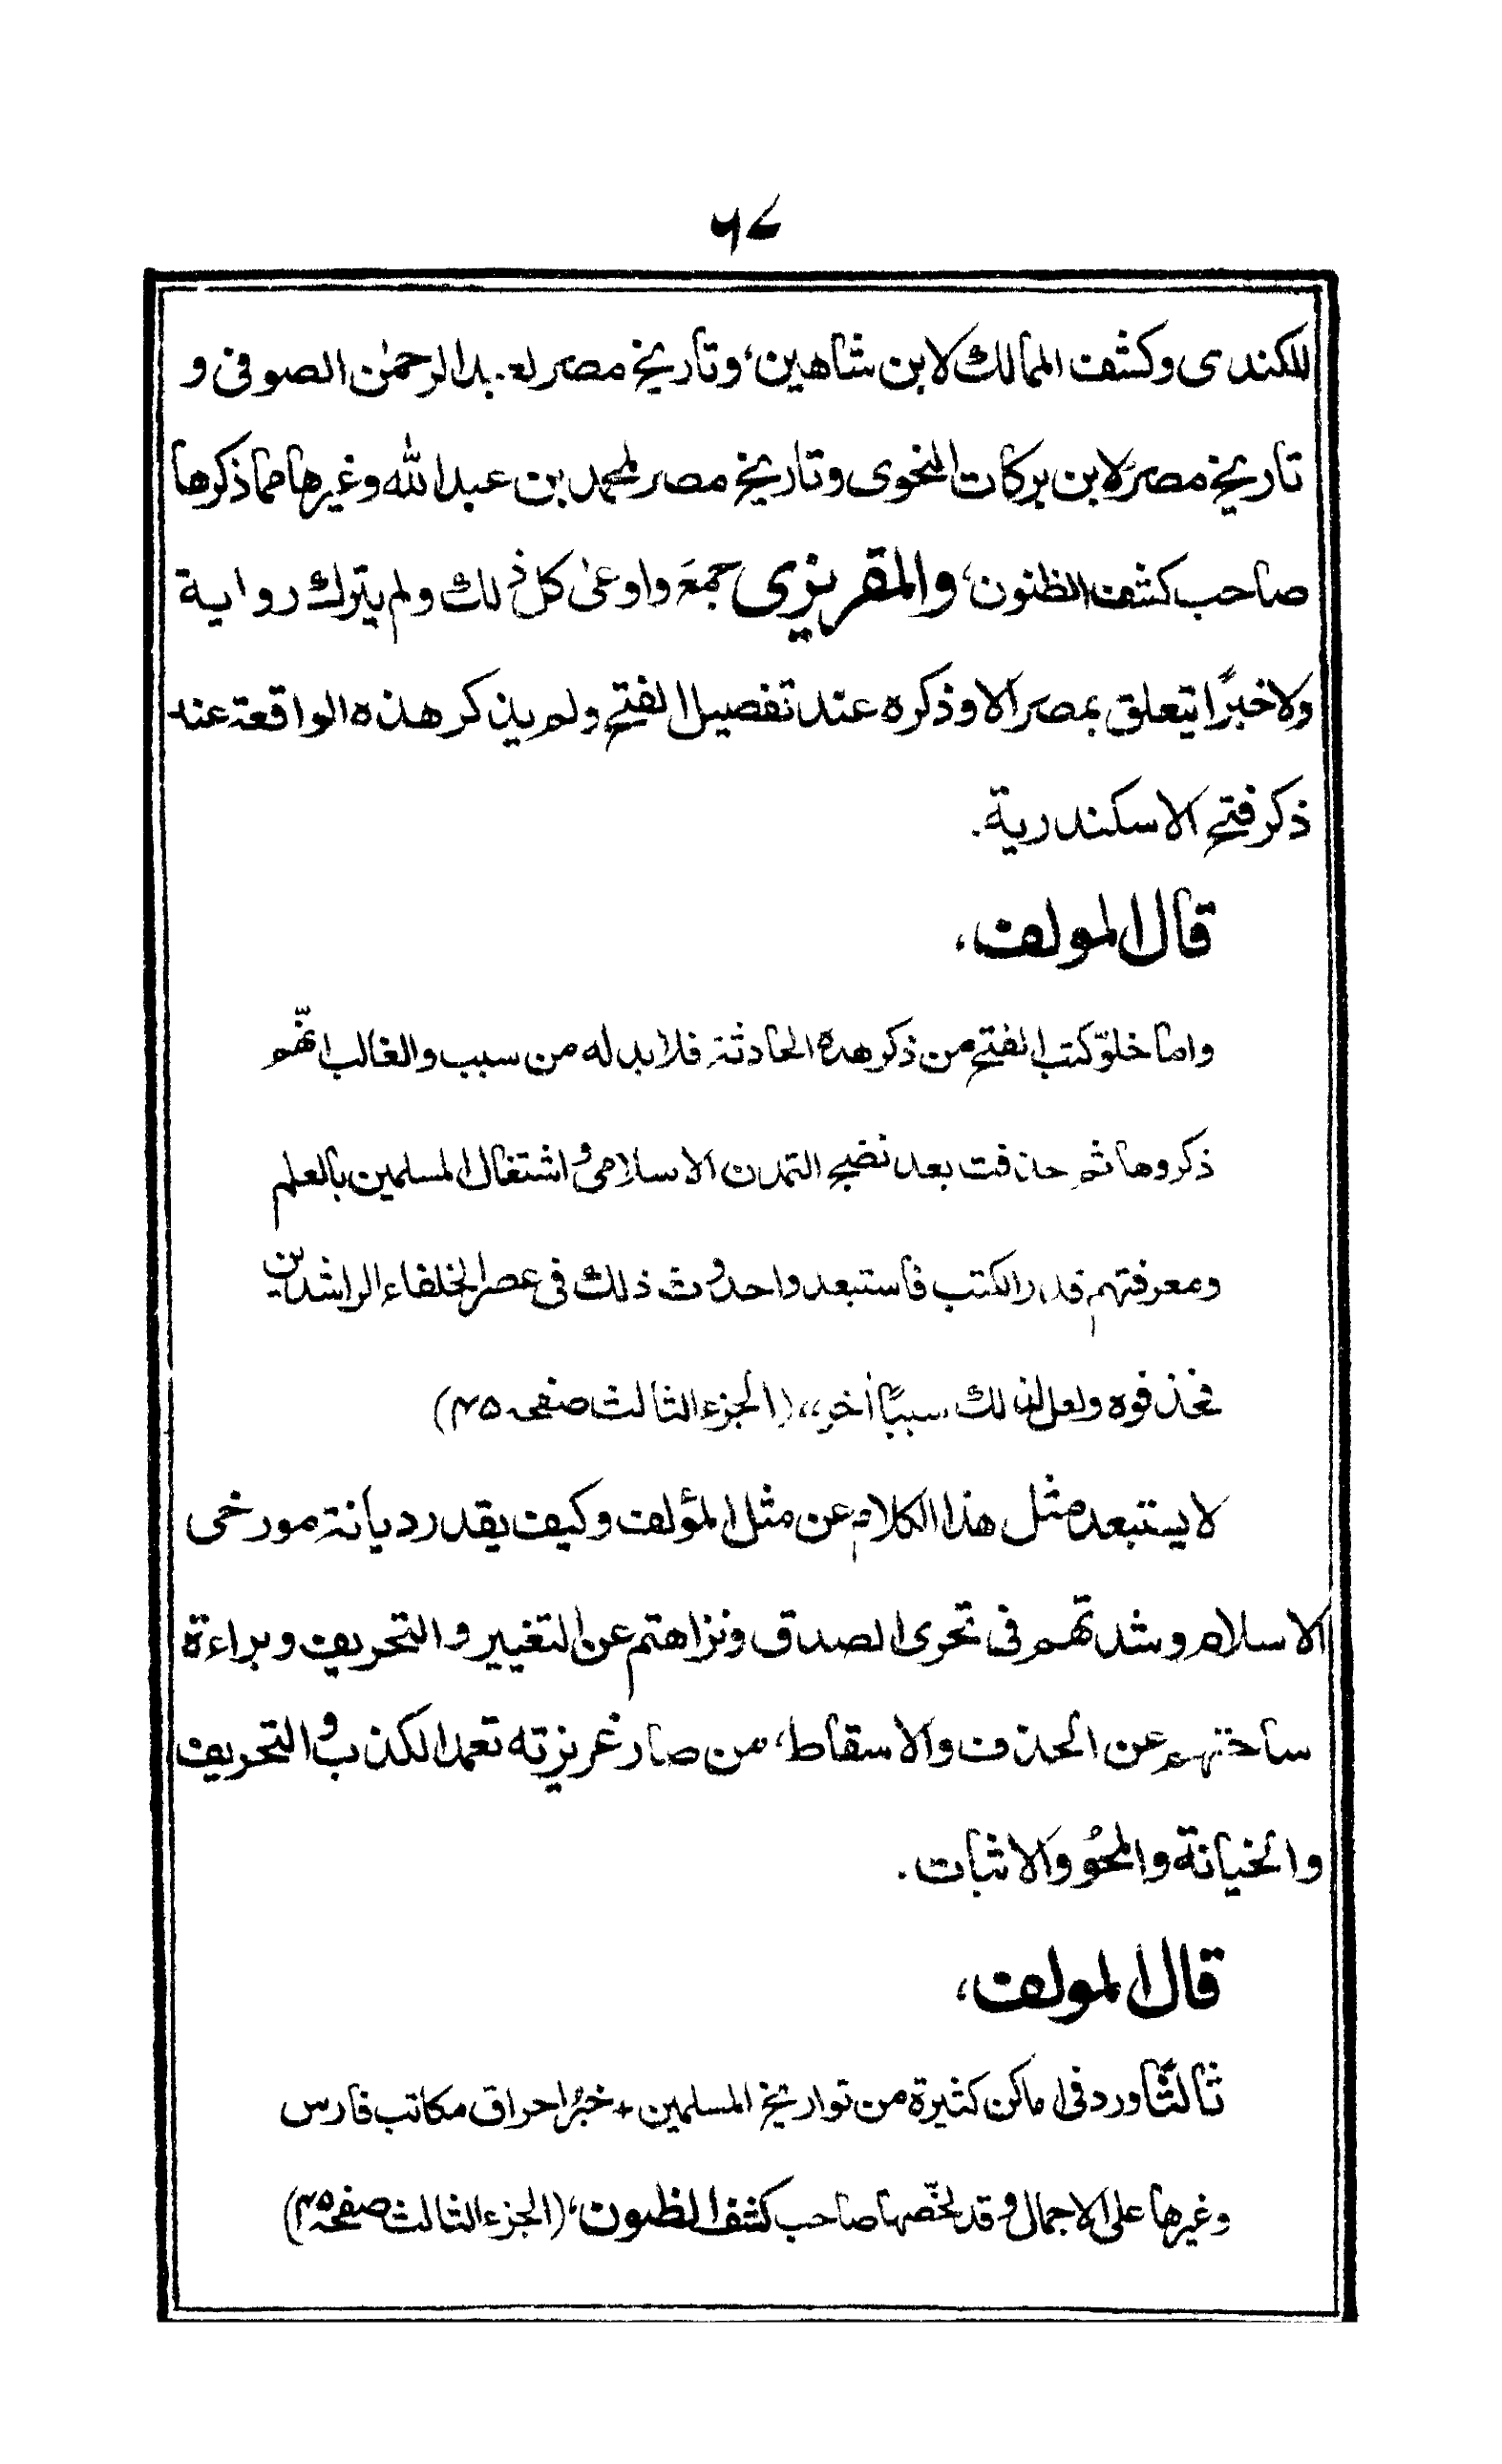 ٦٧
للكندى وكشف الممالك لابن شاهين، وتاريخ مصر لعبد الرحمٰن الصوفى و
تاريخ مصر لابن بركات النحوى وتاريخ مصر لمحمد بن عبد الله وغيرها مما ذكرها
صاحب كشف الظنون، والمقريزى جمعَ واوعىٰ كل ذلك ولم يترك رواية
ولا خبرًا يتعلق بمصر الا وذكره عند تفصيل الفتح ولم يذكر هذه الواقعة عند
ذكر فتح الاسكندرية.
قال المولف،
واما خلوّ كتب الفتح من ذكر هذه الحادثة فلا بد له من سبب والغالب انهّم
ذكروها ثم حذفت بعد نضج التمدن الاسلامى واشتغال المسلمين بالعلم
ومعرفتهم قدر الكتب فاستبعدوا حدوث ذلك فى عصر الخلفاء الراشدين
فحذفوه ولعل لذلك سببًا أخر،، (الجزء الثالث صفحه ٤٥)
لا يستبعد مثل هذا الكلام عن مثل المؤلف وكيف يقدر ديانة مورخى
الاسلام وشدتهم فى تحرى الصدق ونزاهتهم عن التغيير والتحريف وبراءة
ساحتهم عن الحذف والاسقاط، من صار غريزته تعمد الكذب والتحريف
والخيانة والمحُو والاثبات.
قال المولف،
ثالثًا ورد فى اماكن كثيرة من تواريخ المسلمين + خبرُ احراق مكاتب فارس
وغيرها على الاجمال وقد لخّصها صاحب كشف الظنون، (الجزء الثالث صفحه ٤٥)